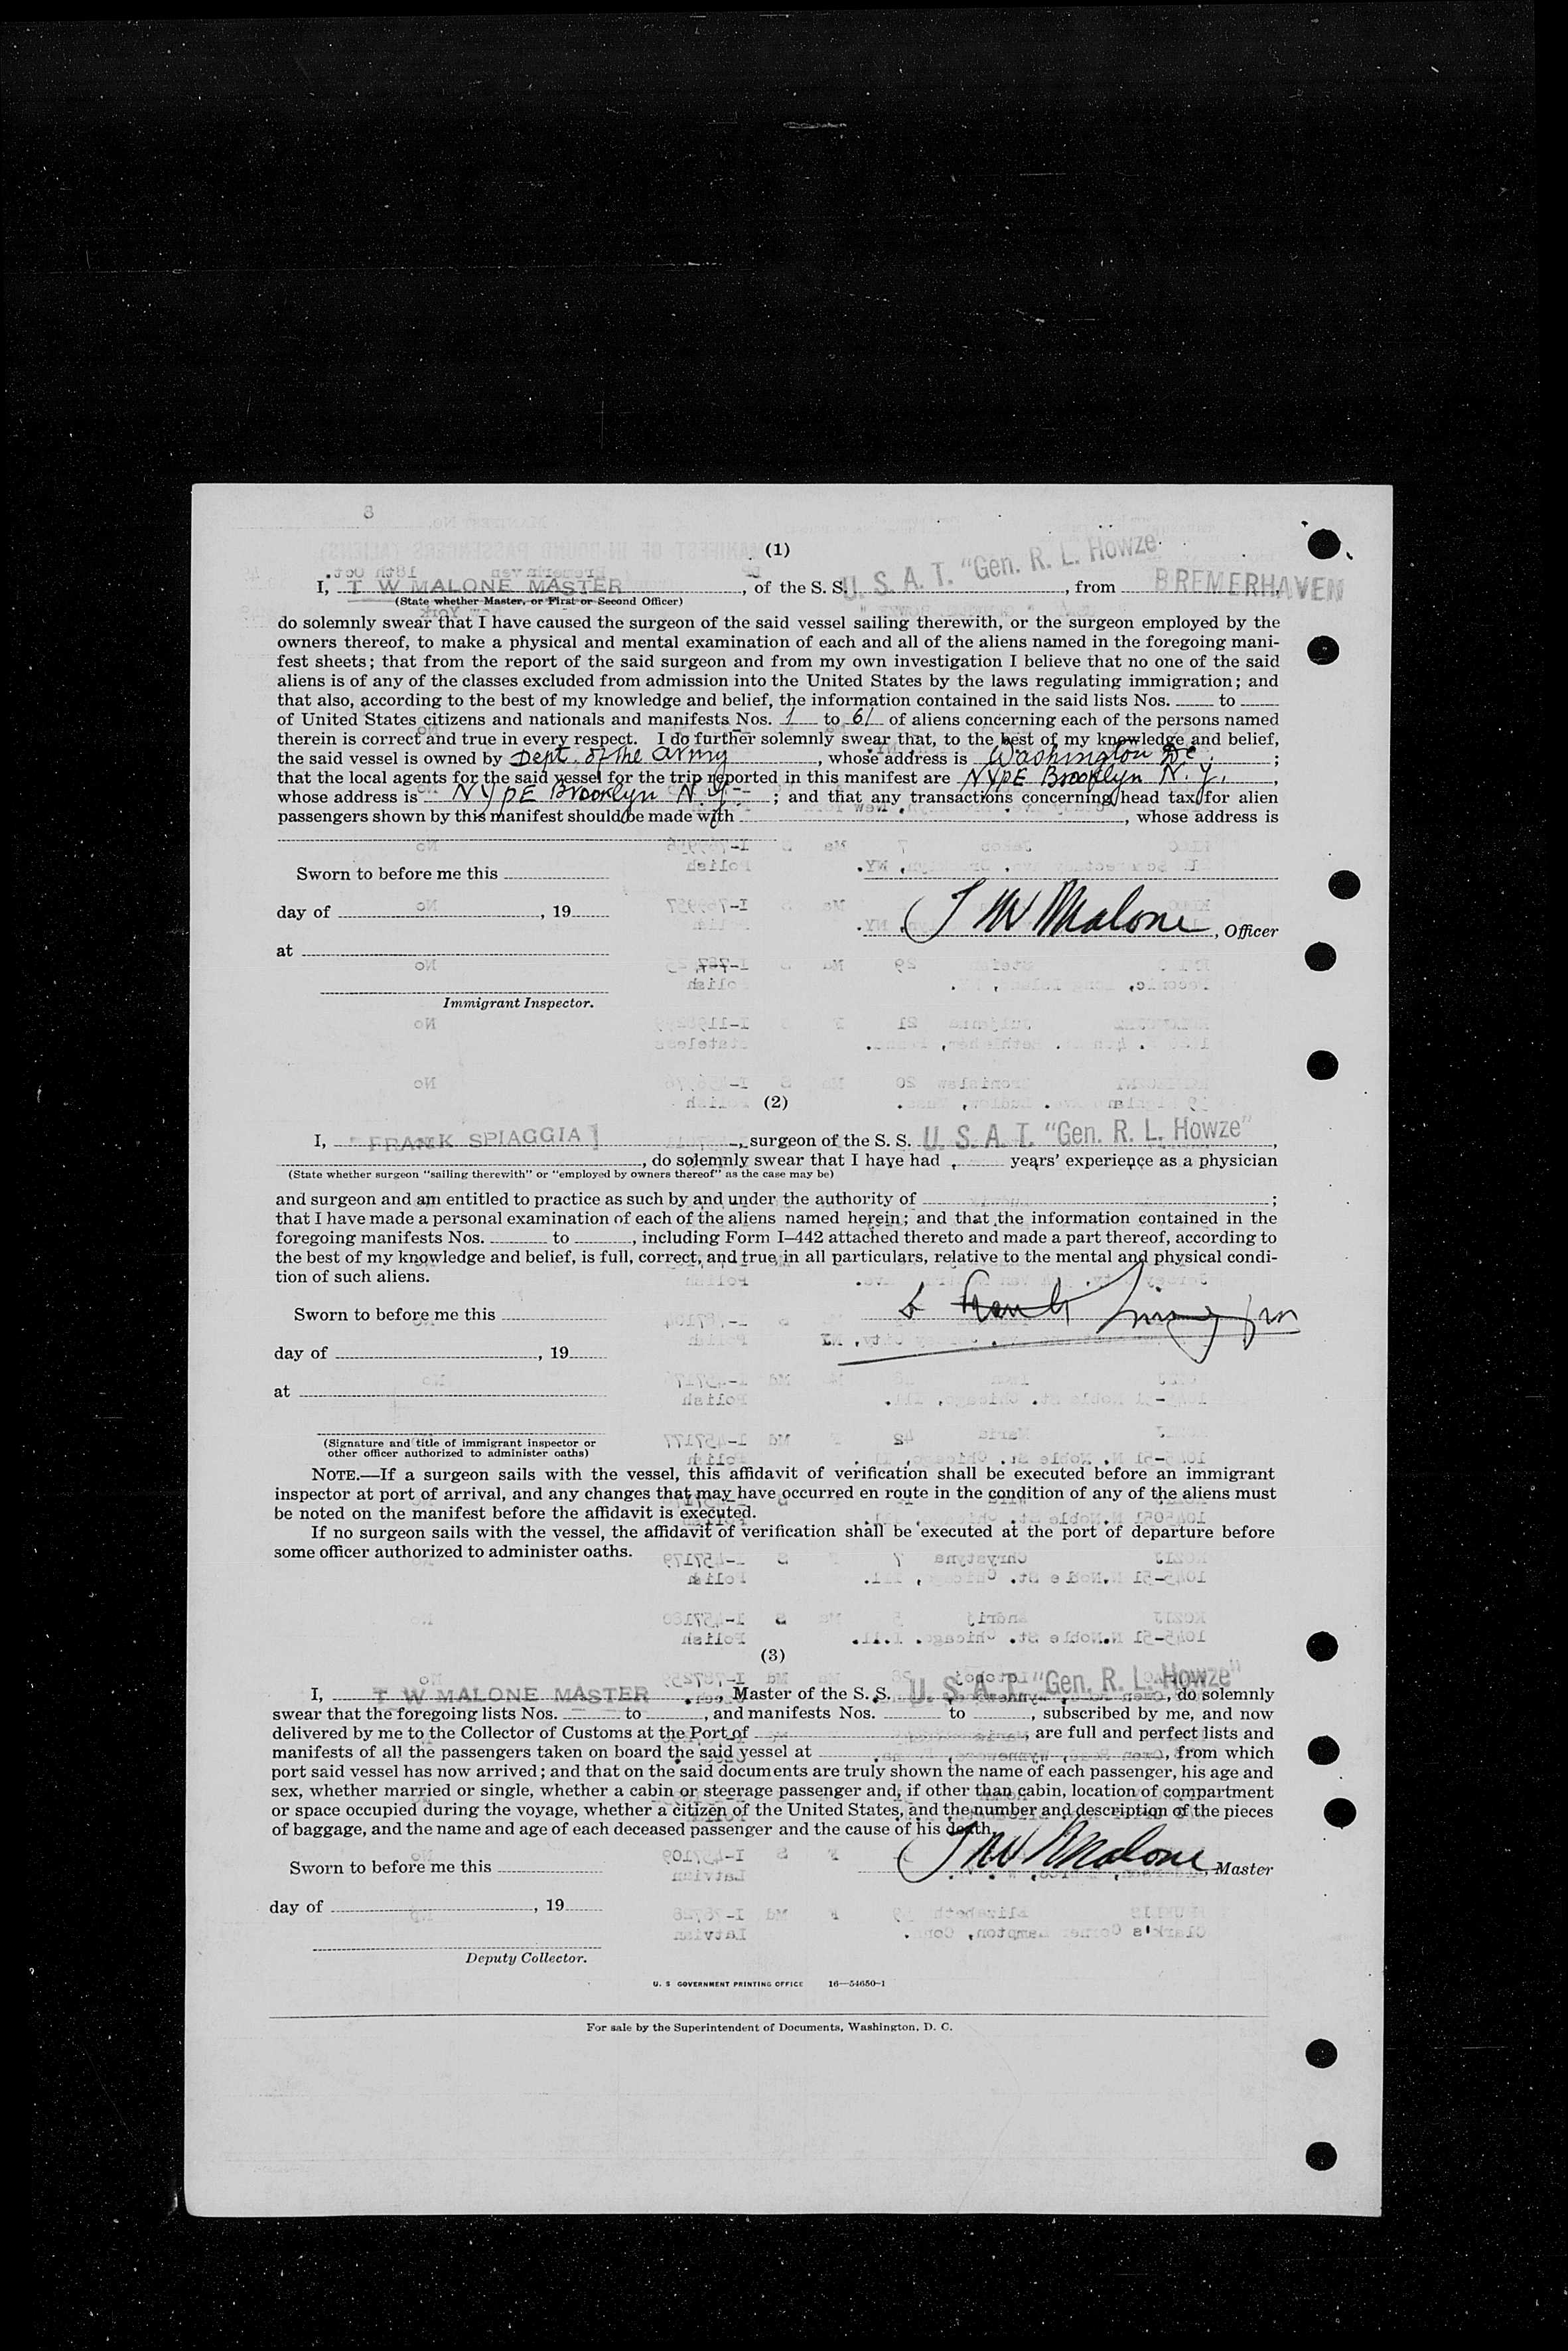 8
(1)
I, T W MALONE MASTER, of the S. S. U. S. A. T. "Gen. R. L. Howze", from BREMERHAVEN,
(State whether Master, or First or Second Officer)
do solemnly swear that I have caused the surgeon of the said vessel sailing therewith, or the surgeon employed by the
owners thereof, to make a physical and mental examination of each and all of the aliens named in the foregoing mani-
fest sheets; that from the report of the said surgeon and from my own investigation I believe that no one of the said
aliens is of any of the classes excluded from admission into the United States by the laws regulating immigration; and
that also, according to the best of my knowledge and belief, the information contained in the said lists Nos. to
of United States citizens and nationals and manifests Nos. 1 to 61 of aliens concerning each of the persons named
therein is correct and true in every respect. I do further solemnly swear that, to the best of my knowledge and belief,
the said vessel is owned by Dept. of the Army, whose address is Washington DC.;
that the local agents for the said vessel for the trip reported in this manifest are NYPE Brooklyn N. Y.,
whose address is NYPE Brooklyn N. Y.; and that any transactions concerning head tax for alien
passengers shown by this manifest should be made with , whose address is
Sworn to before me this
day of , 19
T W Malone, Officer
at
Immigrant Inspector.
(2)
I, FRANK SPIAGGIA, surgeon of the S. S. U. S. A. T. "Gen. R. L. Howze",
, do solemnly swear that I have had years' experience as a physician
(State whether surgeon "sailing therewith" or "employed by owners thereof" as the case may be)
and surgeon and am entitled to practice as such by and under the authority of ;
that I have made a personal examination of each of the aliens named herein; and that the information contained in the
foregoing manifests Nos. to , including Form I–442 attached thereto and made a part thereof, according to
the best of my knowledge and belief, is full, correct, and true in all particulars, relative to the mental and physical condi-
tion of such aliens.
Sworn to before me this
day of , 19
at
(Signature and title of immigrant inspector or
other officer authorized to administer oaths)
NOTE.—If a surgeon sails with the vessel, this affidavit of verification shall be executed before an immigrant
inspector at port of arrival, and any changes that may have occurred en route in the condition of any of the aliens must
be noted on the manifest before the affidavit is executed.
If no surgeon sails with the vessel, the affidavit of verification shall be executed at the port of departure before
some officer authorized to administer oaths.
(3)
I, T W MALONE MASTER, Master of the S. S. U. S. A. T. "Gen. R. L. Howze", do solemnly
swear that the foregoing lists Nos. to , and manifests Nos. to , subscribed by me, and now
delivered by me to the Collector of Customs at the Port of , are full and perfect lists and
manifests of all the passengers taken on board the said vessel at , from which
port said vessel has now arrived; and that on the said documents are truly shown the name of each passenger, his age and
sex, whether married or single, whether a cabin or steerage passenger and, if other than cabin, location of compartment
or space occupied during the voyage, whether a citizen of the United States, and the number and description of the pieces
of baggage, and the name and age of each deceased passenger and the cause of his death.
Sworn to before me this
T W Malone, Master
day of , 19
Deputy Collector.
U. S GOVERNMENT PRINTING OFFICE 16—54650-1
For sale by the Superintendent of Documents, Washington, D. C.